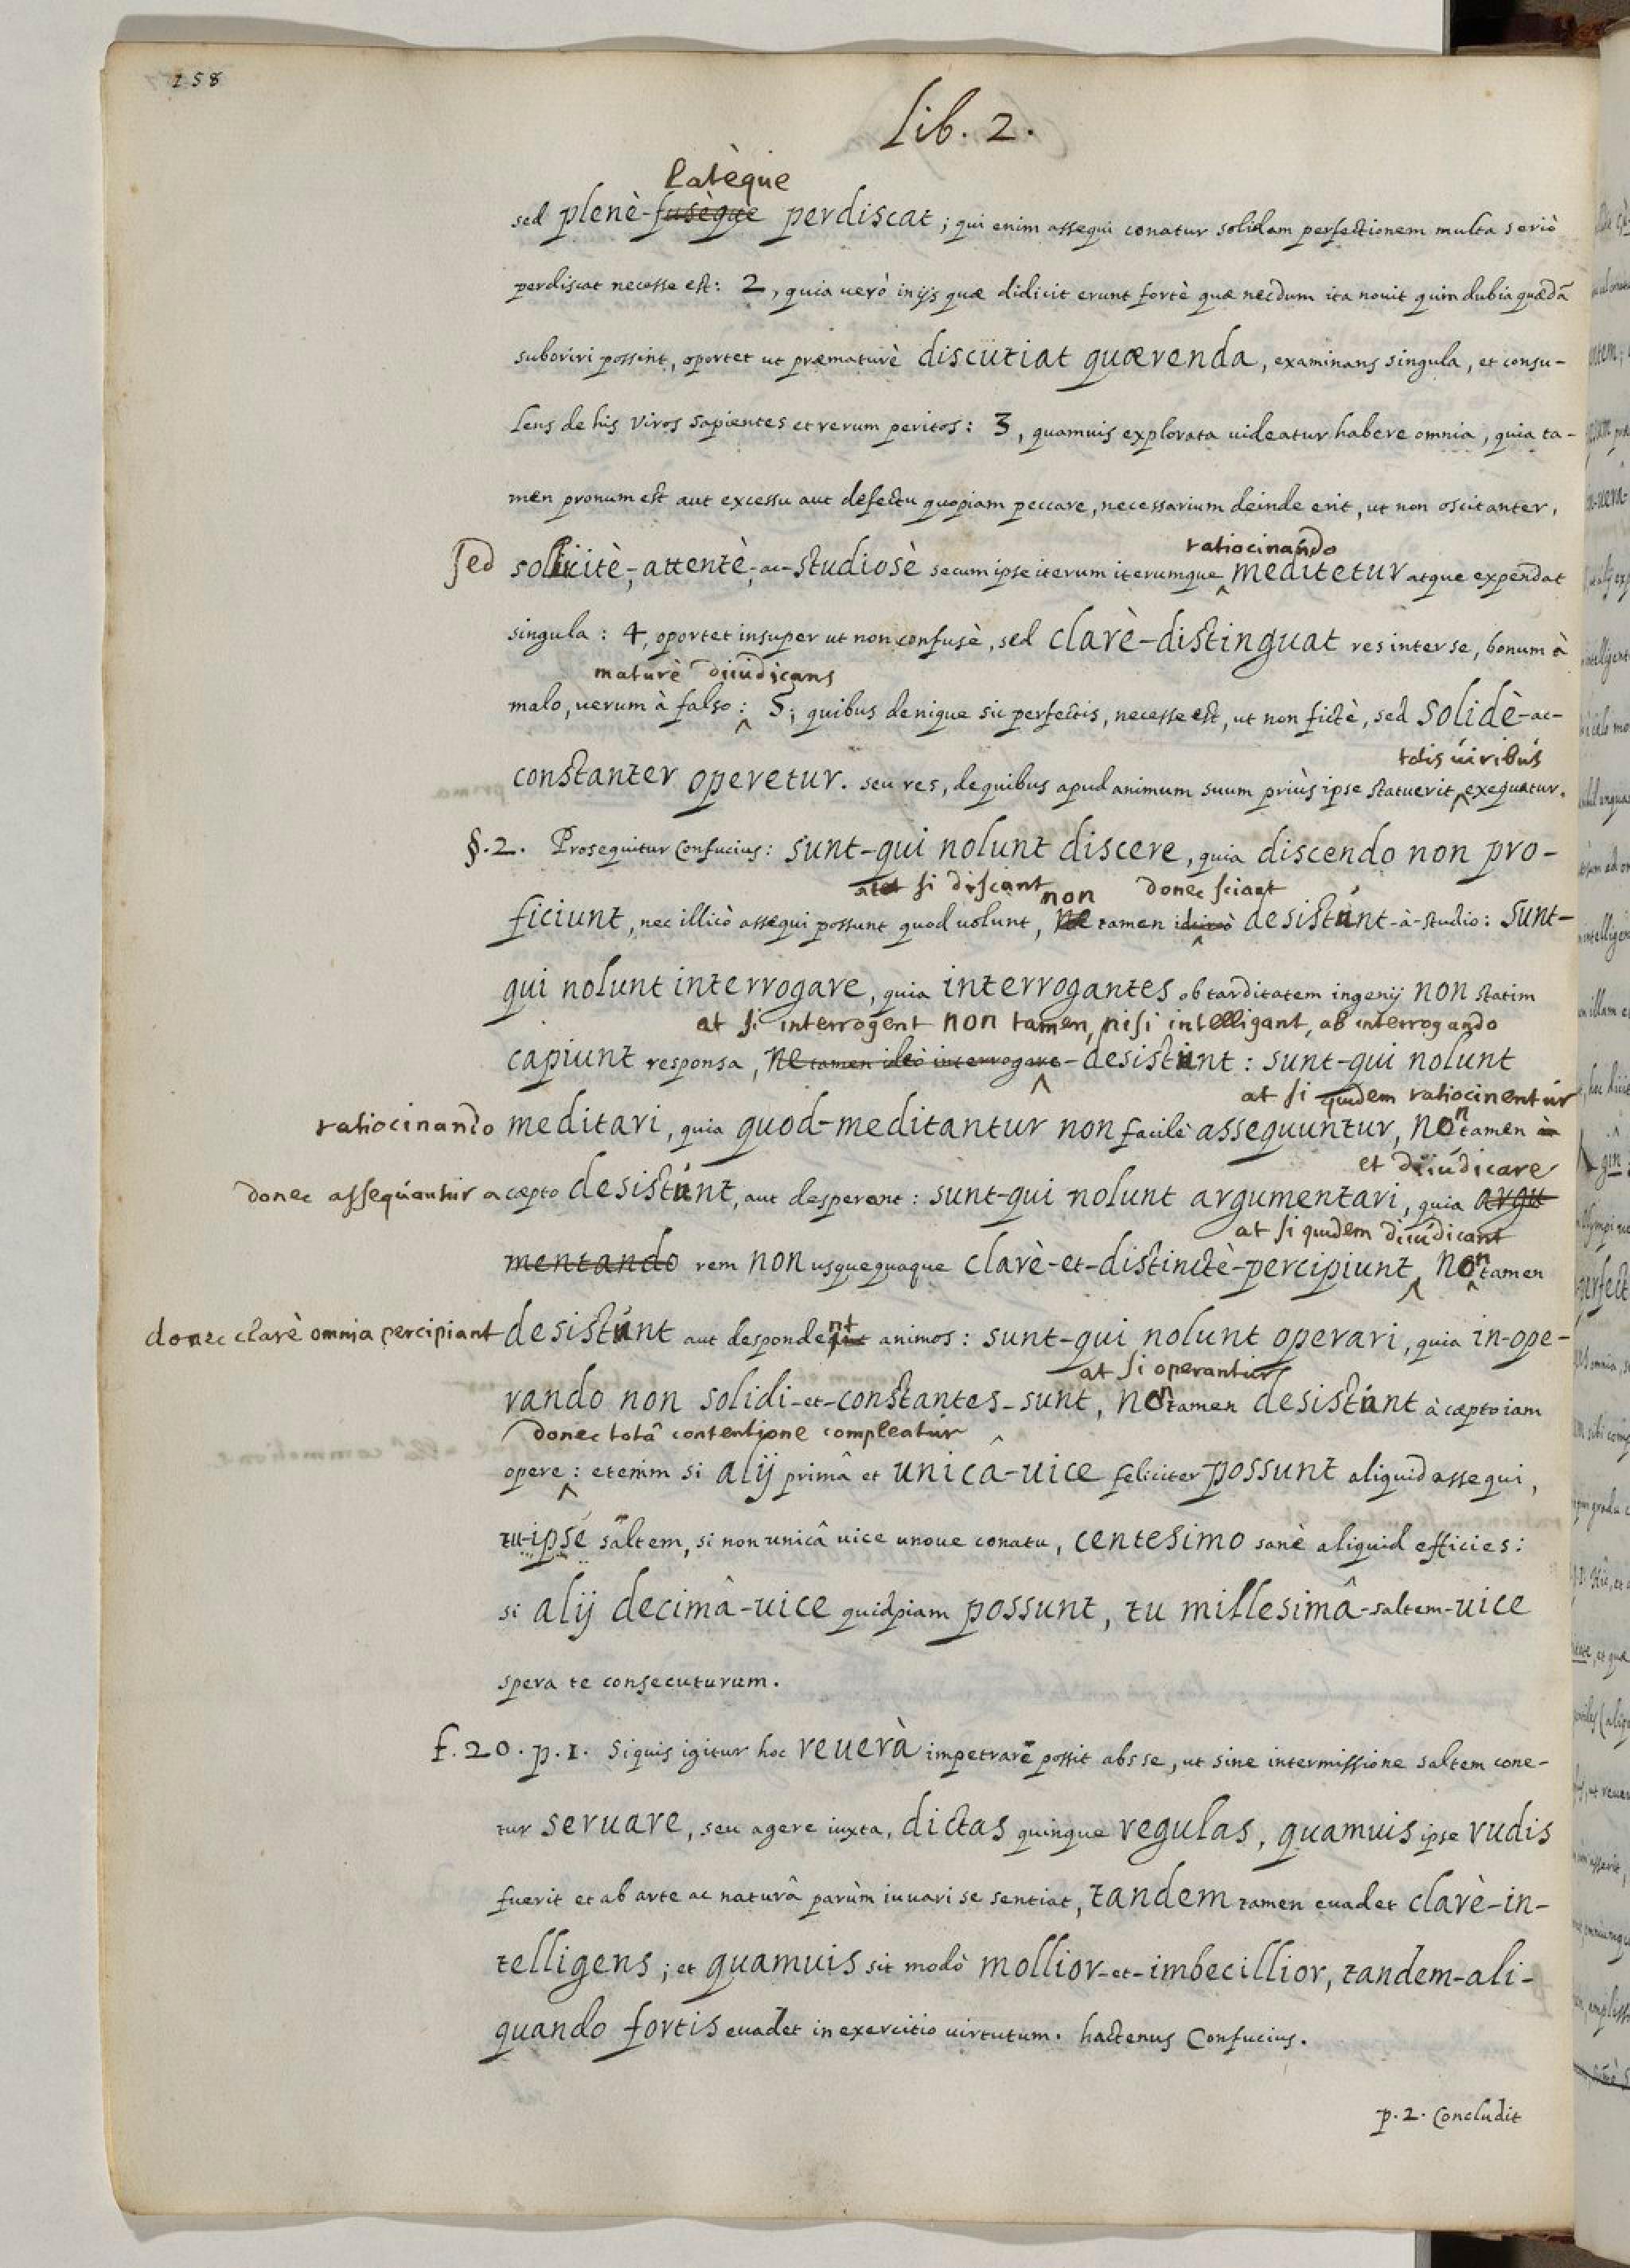 158
Lib. 2.
latèque
sed plenè-fusèque perdiscat; qui enim assequi conatur solidam perfectionem multa seriò
perdiscat necesse est: 2, quia uerò in ijs quæ didicit erunt fortè quæ necdum ita nouit quin dubia quædã
suboriri possint, oportet ut præmaturè discutiat quærenda, examinans singula, et consu-
lens de his viros sapientes et rerum peritos: 3, quamuis explorata uideatur habere omnia, quia ta-
men pronum est aut excessu aut defectu quopiam peccare, necessarium deinde erit, ut non oscitanter,
ratiocinando
sed solicitè-, attentè-, ac-studiosè secum ipse iterum iterumque ^ meditetur atque expendat
singula: 4, oportet insuper ut non confusè, sed clarè-distinguat res inter se, bonum à
maturè diiudicans
malo, uerum à falso ^: 5, quibus denique sic perfectis, necesse est, ut non fictè, sed solidè-ac-
totis uiribus
constanter operetur. seu res, de quibus apud animum suum priùs ipse statuerit, ^ exequatur.
§.2. Prosequitur Confucius: sunt-qui nolunt discere, quia discendo non pro-
at si discant non donec sciant
ficiunt, nec illicò assequi possunt quod uolunt, ne tamen idcircò ^ desistunt-à-studio: sunt-
qui nolunt interrogare, quia interrogantes ob tarditatem ingenij non statim
at si interrogent non tamen, nisi intelligant, ab interrogando
capiunt responsa, ne tamen ideò interrogare ^-desistunt: sunt-qui nolunt
at si quidem ratiocinentur
ratiocinando meditari, quia quod-meditantur non facilè assequuntur, non tamen in
et diiudicare
donec assequantur acœpto desistunt, aut desperent: sunt-qui nolunt argumentari, quia argu
at si quidem diiudicant
mentando rem non usquequaque clarè-et-distinctè-percipiunt ^, non tamen
donec clarè omnia percipiant desistunt aut despondent animos: sunt-qui nolunt operari, quia in-ope-
at si operantur
rando non solidi-et-constantes-sunt, non tamen desistunt à cæpto iam
donec totâ contentione compleatur
opere ^: etenim si alij primâ et unicâ-uice feliciter possunt aliquid assequi,
tu-ipse saltem, si non unicâ uice unoue conatu, centesimo sanè aliquid efficies:
si alij decimâ-uice quidpiam possunt, tu millesimâ-saltem-uice
spera te consecuturum.
f.20. p.1. Siquis igitur hoc reuerà impetrare possit abs se, ut sine intermissione saltem cone-
tur seruare, seu agere iuxta, dictas quinque regulas, quamuis ipse rudis
fuerit et ab arte ac naturâ parùm iuuari se sentiat, tandem tamen euadet clarè-in-
telligens; et quamuis sit modò mollior-et-imbecillior, tandem-ali-
quando fortis euadet in exercitio uirtutum. hactenus Confucius.
p.2. Concludit